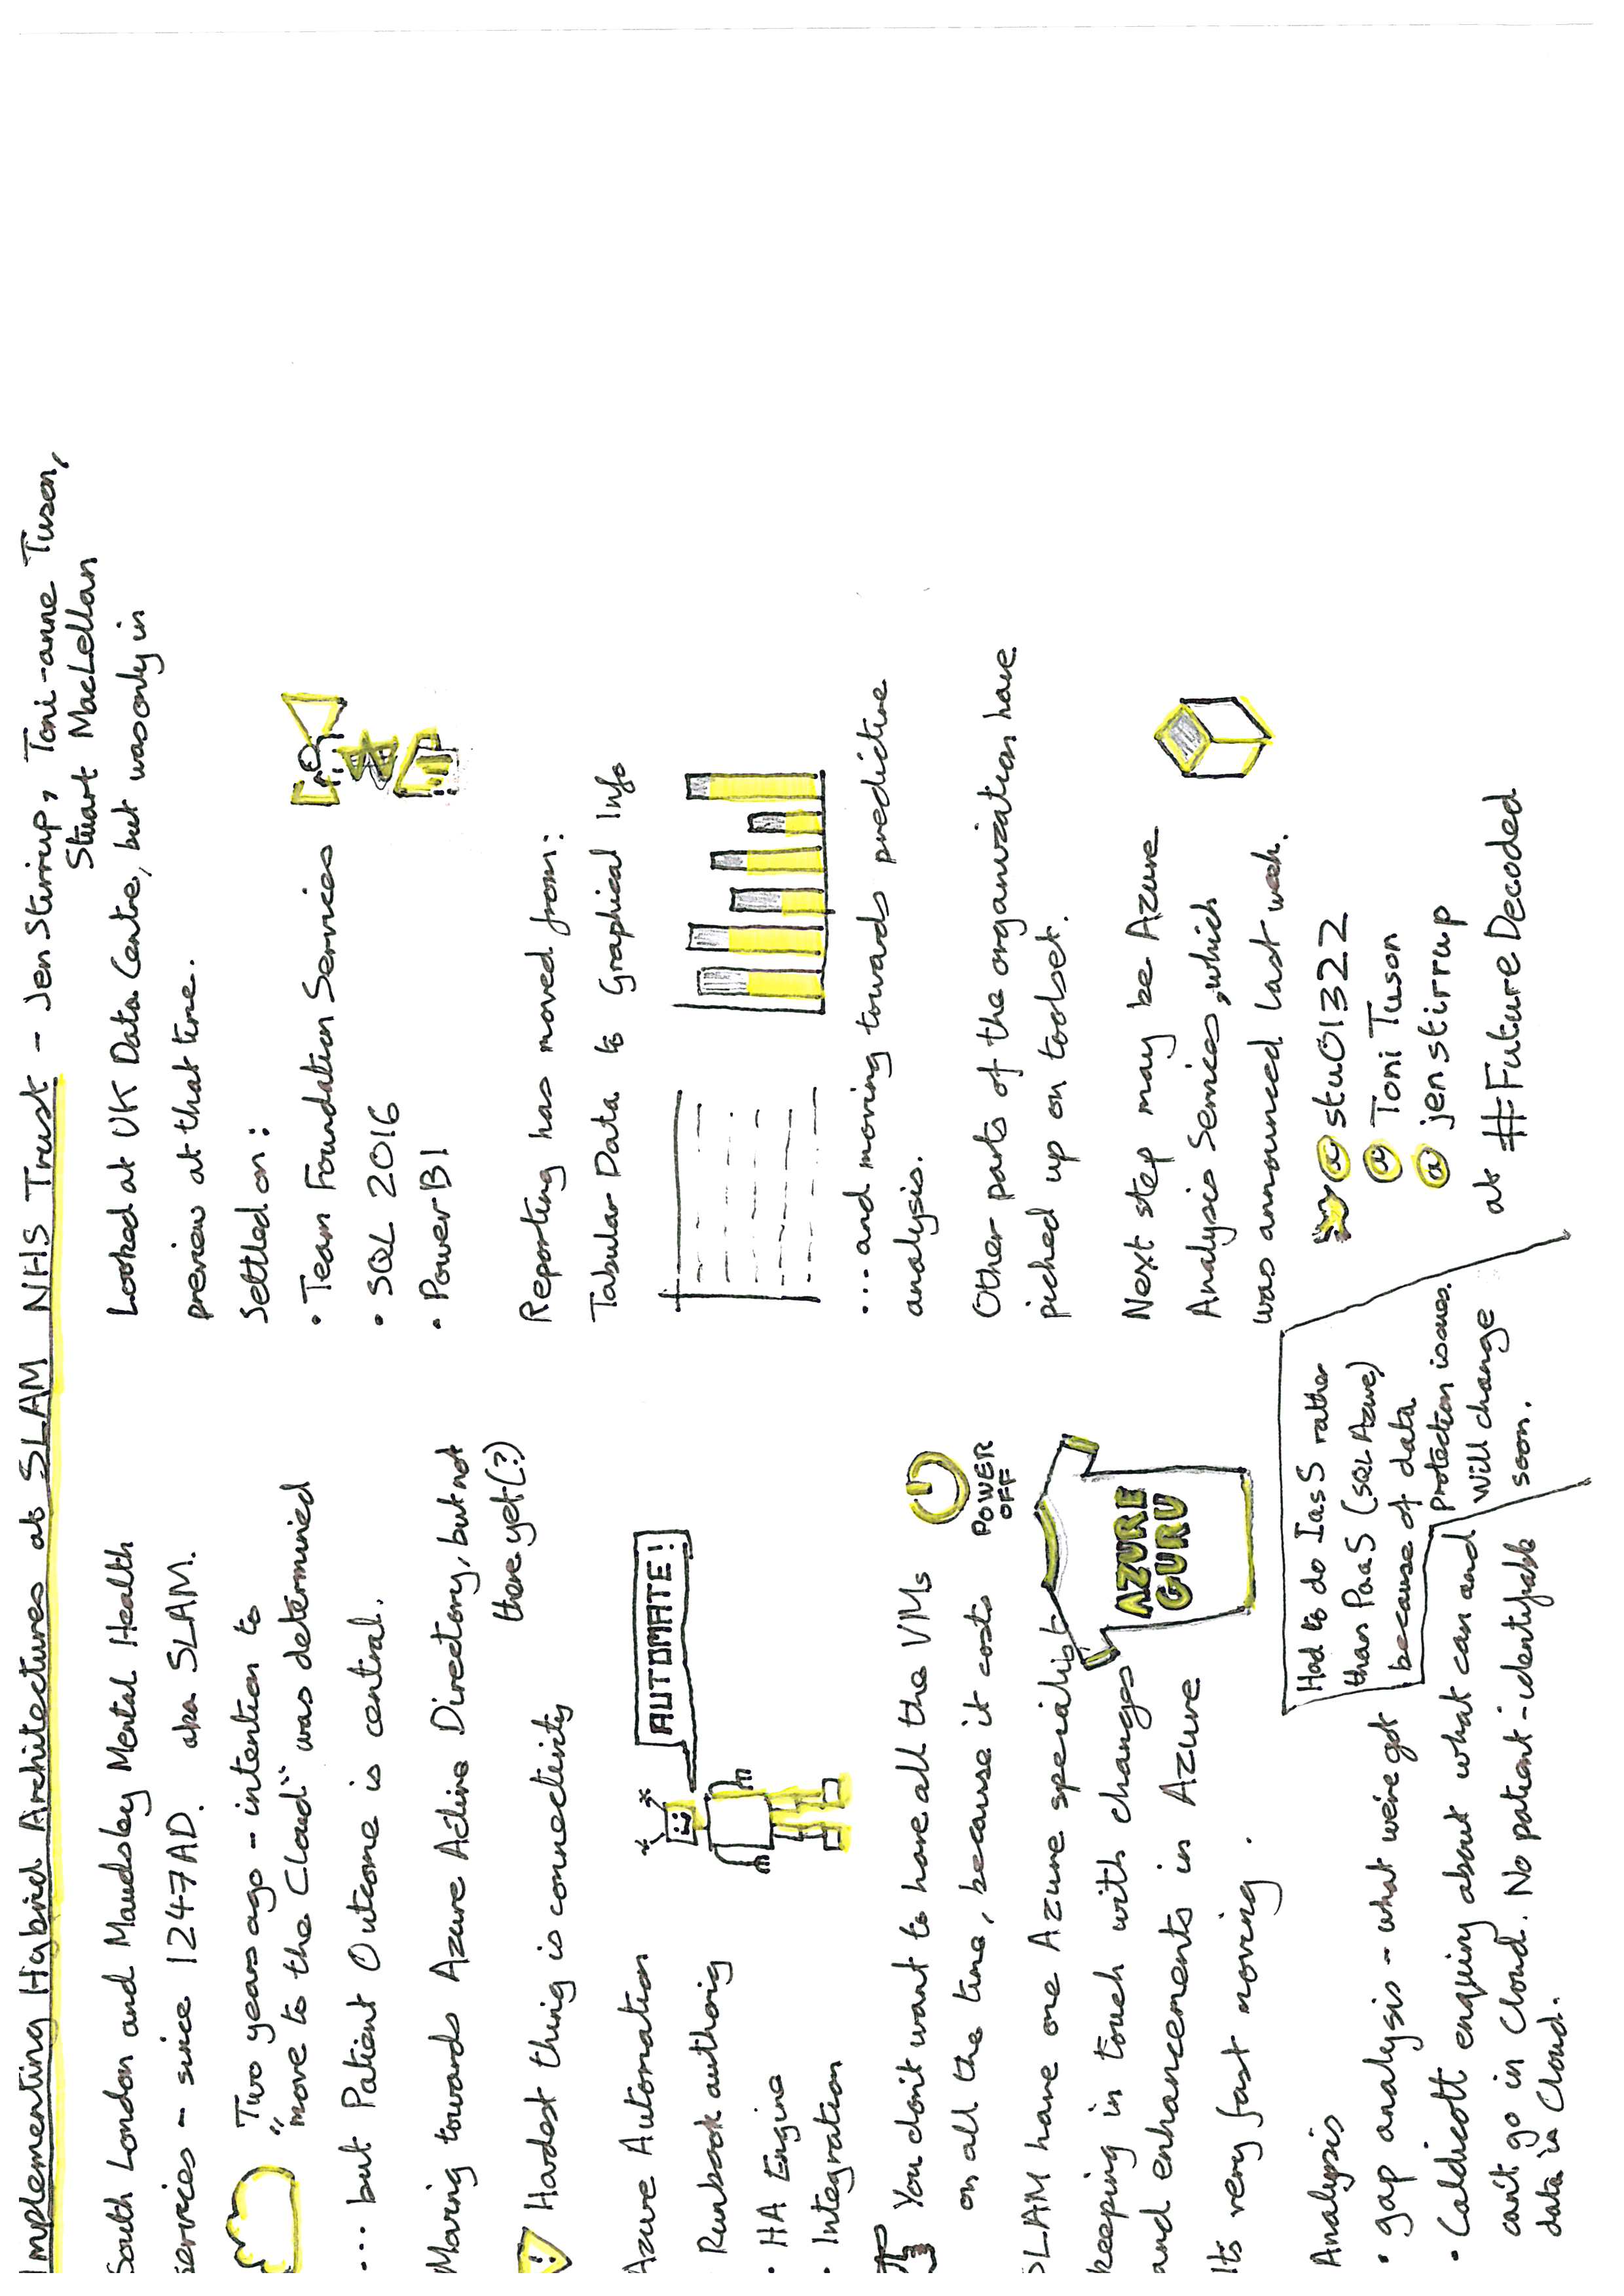 Implementing Hybrid Architectures at SLAM NHS Trust - Jen Stirrup, Toni-anne Tuson,
Stuart MacLellan
South London and Maudsley Mental Health
services - since 1247AD. aka SLAM.
Two years ago - intention to
"move to the Cloud" was determined
... but Patient Outcome is central.
Moving towards Azure Active Directory, but not
there yet (?)
! Hardest thing is connectivity
Azure Automation
Runbook authoring
• HA Engine
• Integration
AUTOMATE!
You don't want to have all the VMs
on all the time, because it costs
POWER
OFF
SLAM have one Azure specialist
keeping in touch with changes
and enhancements in Azure
Its very fast moving.
AZURE
GURU
Analysis
• gap analysis - what we've got
• Caldicott enquiry about what can and
can't go in Cloud. No patient-identifyable
data in Cloud.
Had to do IaaS rather
than PaaS (SQL Azure)
because of data
protection issues.
Will change
soon.
Looked at UK Data Centre, but was only in
preview at that time.
Settled on:
• Team Foundation Services
• SQL 2016
• PowerBI
Reporting has moved from:
Tabular Data to Graphical Info
... and moving towards predictive
analysis.
Other parts of the organization have
picked up on toolset.
Next step may be Azure
Analysis Services, which
was announced last week.
@stu01322
@ToniTuson
@jenstirrup
at #FutureDecoded